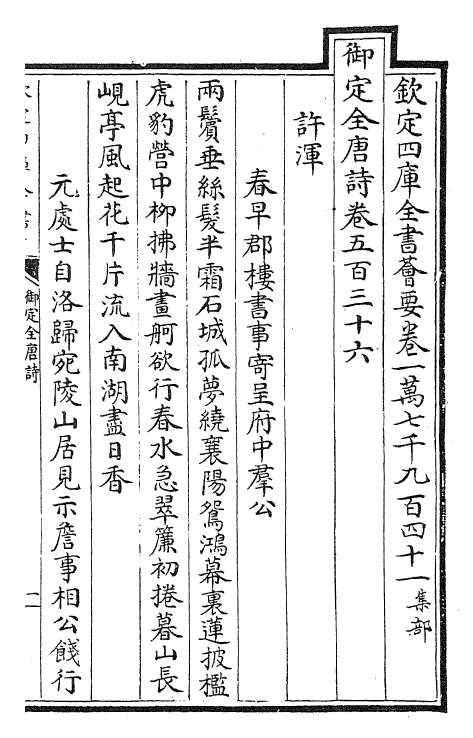 欽定四庫全書薈要卷一萬七千九百四十一集部
御定全唐詩卷五百三十六
許渾
春早郡樓書事寄呈府中羣公
兩鬢垂絲髮半霜石城孤夢繞襄陽鴛鴻幕裏蓮披檻
虎豹營中柳拂牆畫舸欲行春水急翠簾初捲暮山長
峴亭風起花千片流入南湖盡日香
元處士自洛歸宛陵山居見示詹事相公餞行
御定全唐詩
一